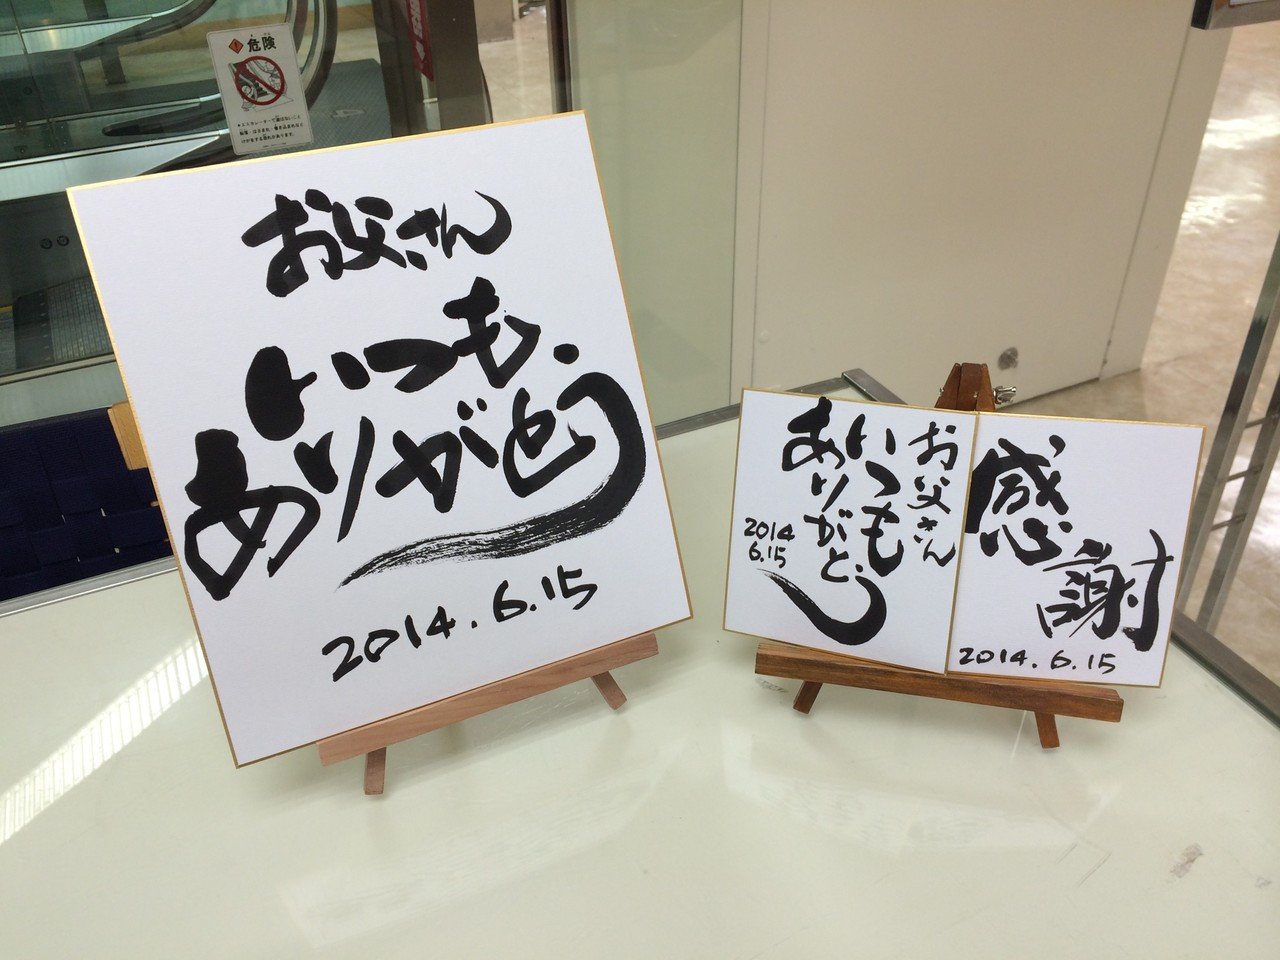 危険
お父さん
いつも
ありがとう
2014.6.15
お父さん
いつも
ありがとう
2014
6.15
感謝
2014.6.15